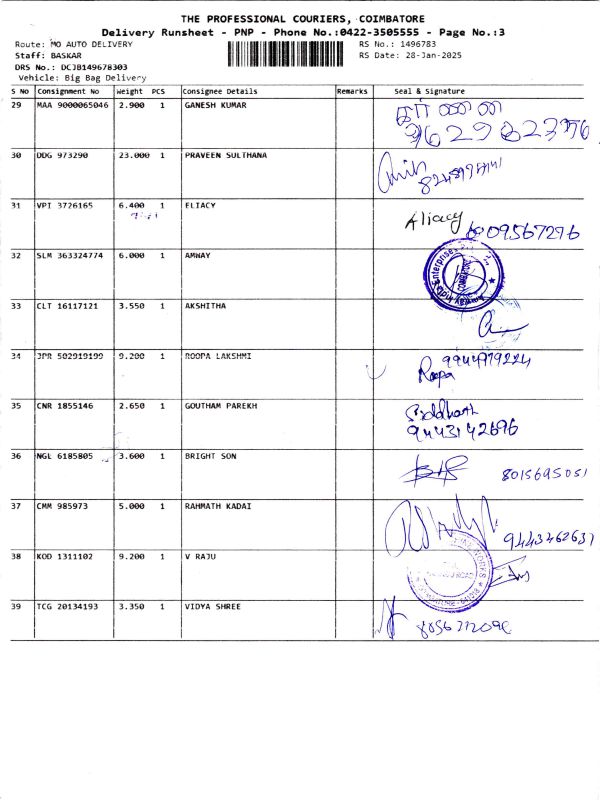 THE PROFESSIONAL COURIERS, COIMBATORE
Delivery Runsheet - PNP - Phone No.:0422-3505555 - Page No.:3
Route: MO AUTO DELIVERY RS No.: 1496783
Staff: BASKAR RS Date: 28-Jan-2025
DRS No.: DCJB149678303
Vehicle: Big Bag Delivery
S No Consignment No Weight PCS Consignee Details Remarks Seal & Signature
29 MAA 9000065046 2.900 1 GANESH KUMAR
30 DDG 973290 23.000 1 PRAVEEN SULTHANA
31 VPI 3726165 6.400 1 ELIACY Aliacy
6009567276
32 SLM 363324774 6.000 1 AMWAY
33 CLT 16117121 3.550 1 AKSHITHA
34 JPR 502919199 9.200 1 ROOPA LAKSHMI 9944979224
Roopa
35 CNR 1855146 2.650 1 GOUTHAM PAREKH Siddharth
9443142696
36 NGL 6185805 3.600 1 BRIGHT SON 8015695051
37 CMM 985973 5.000 1 RAHMATH KADAI 9443462637
38 KOD 1311102 9.200 1 V RAJU
39 TCG 20134193 3.350 1 VIDYA SHREE